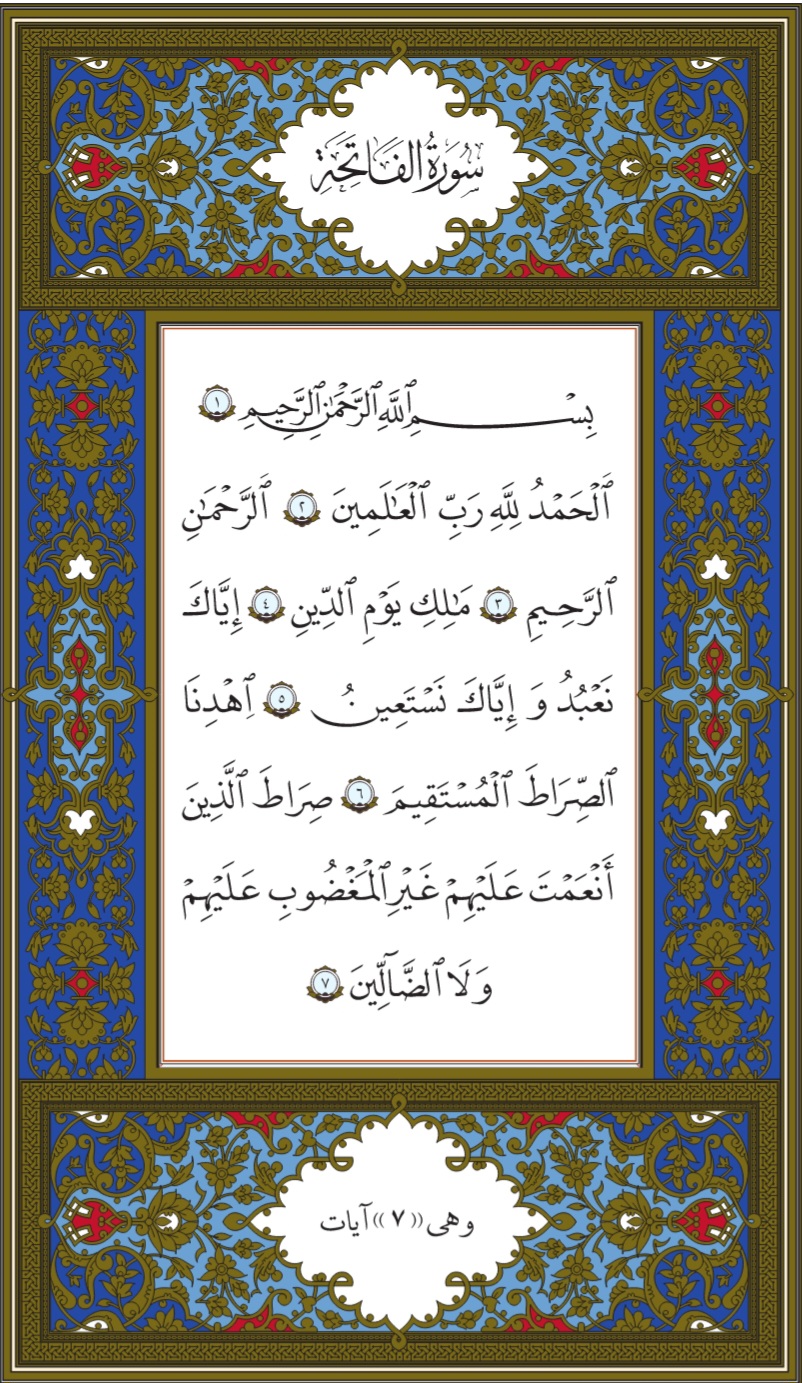 سُورَةُ الفَاتِحَةِ
بِسْمِ ٱللَّهِ ٱلرَّحْمَٰنِ ٱلرَّحِيمِ ١
ٱَلْحَمْدُ لِلَّهِ رَبِّ ٱلْعَٰالَمِينَ ٢ ٱَلرَّحْمَٰنِ
ٱلرَّحِيمِ ٣ مَٰالِكِ يَوْمِ ٱلدِّينِ ٤ إِيَّاكَ
نَعْبُدُ وَ إِيَّاكَ نَسْتَعِينُ ٥ ٱِهْدِنَا
ٱلصِّرَاطَ ٱلْمُسْتَقِيمَ ٦ صِرَاطَ ٱلَّذِينَ
أَنْعَمْتَ عَلَيْهِمْ غَيْرِ ٱلْمَغْضُوبِ عَلَيْهِمْ
وَ لَا ٱلضَّآلِّينَ ٧
وهی ((٧)) آيات